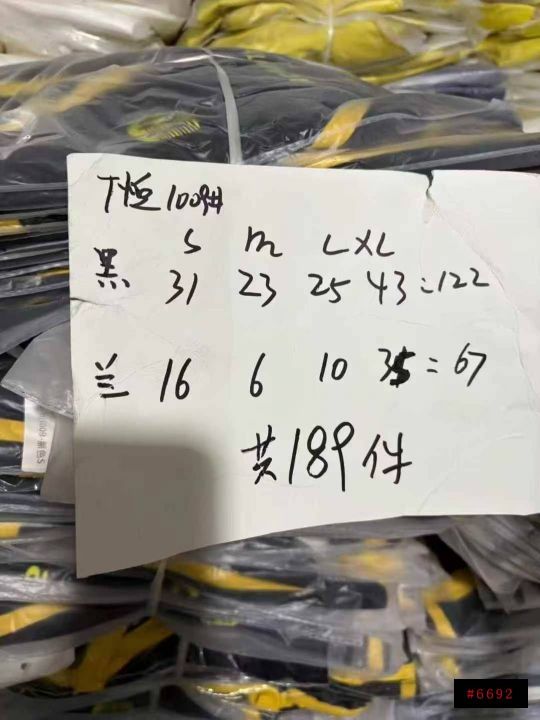 T恤1009#
S M L XL
黑 31 23 25 43=122
兰 16 6 10 35=67
共189件
#6692